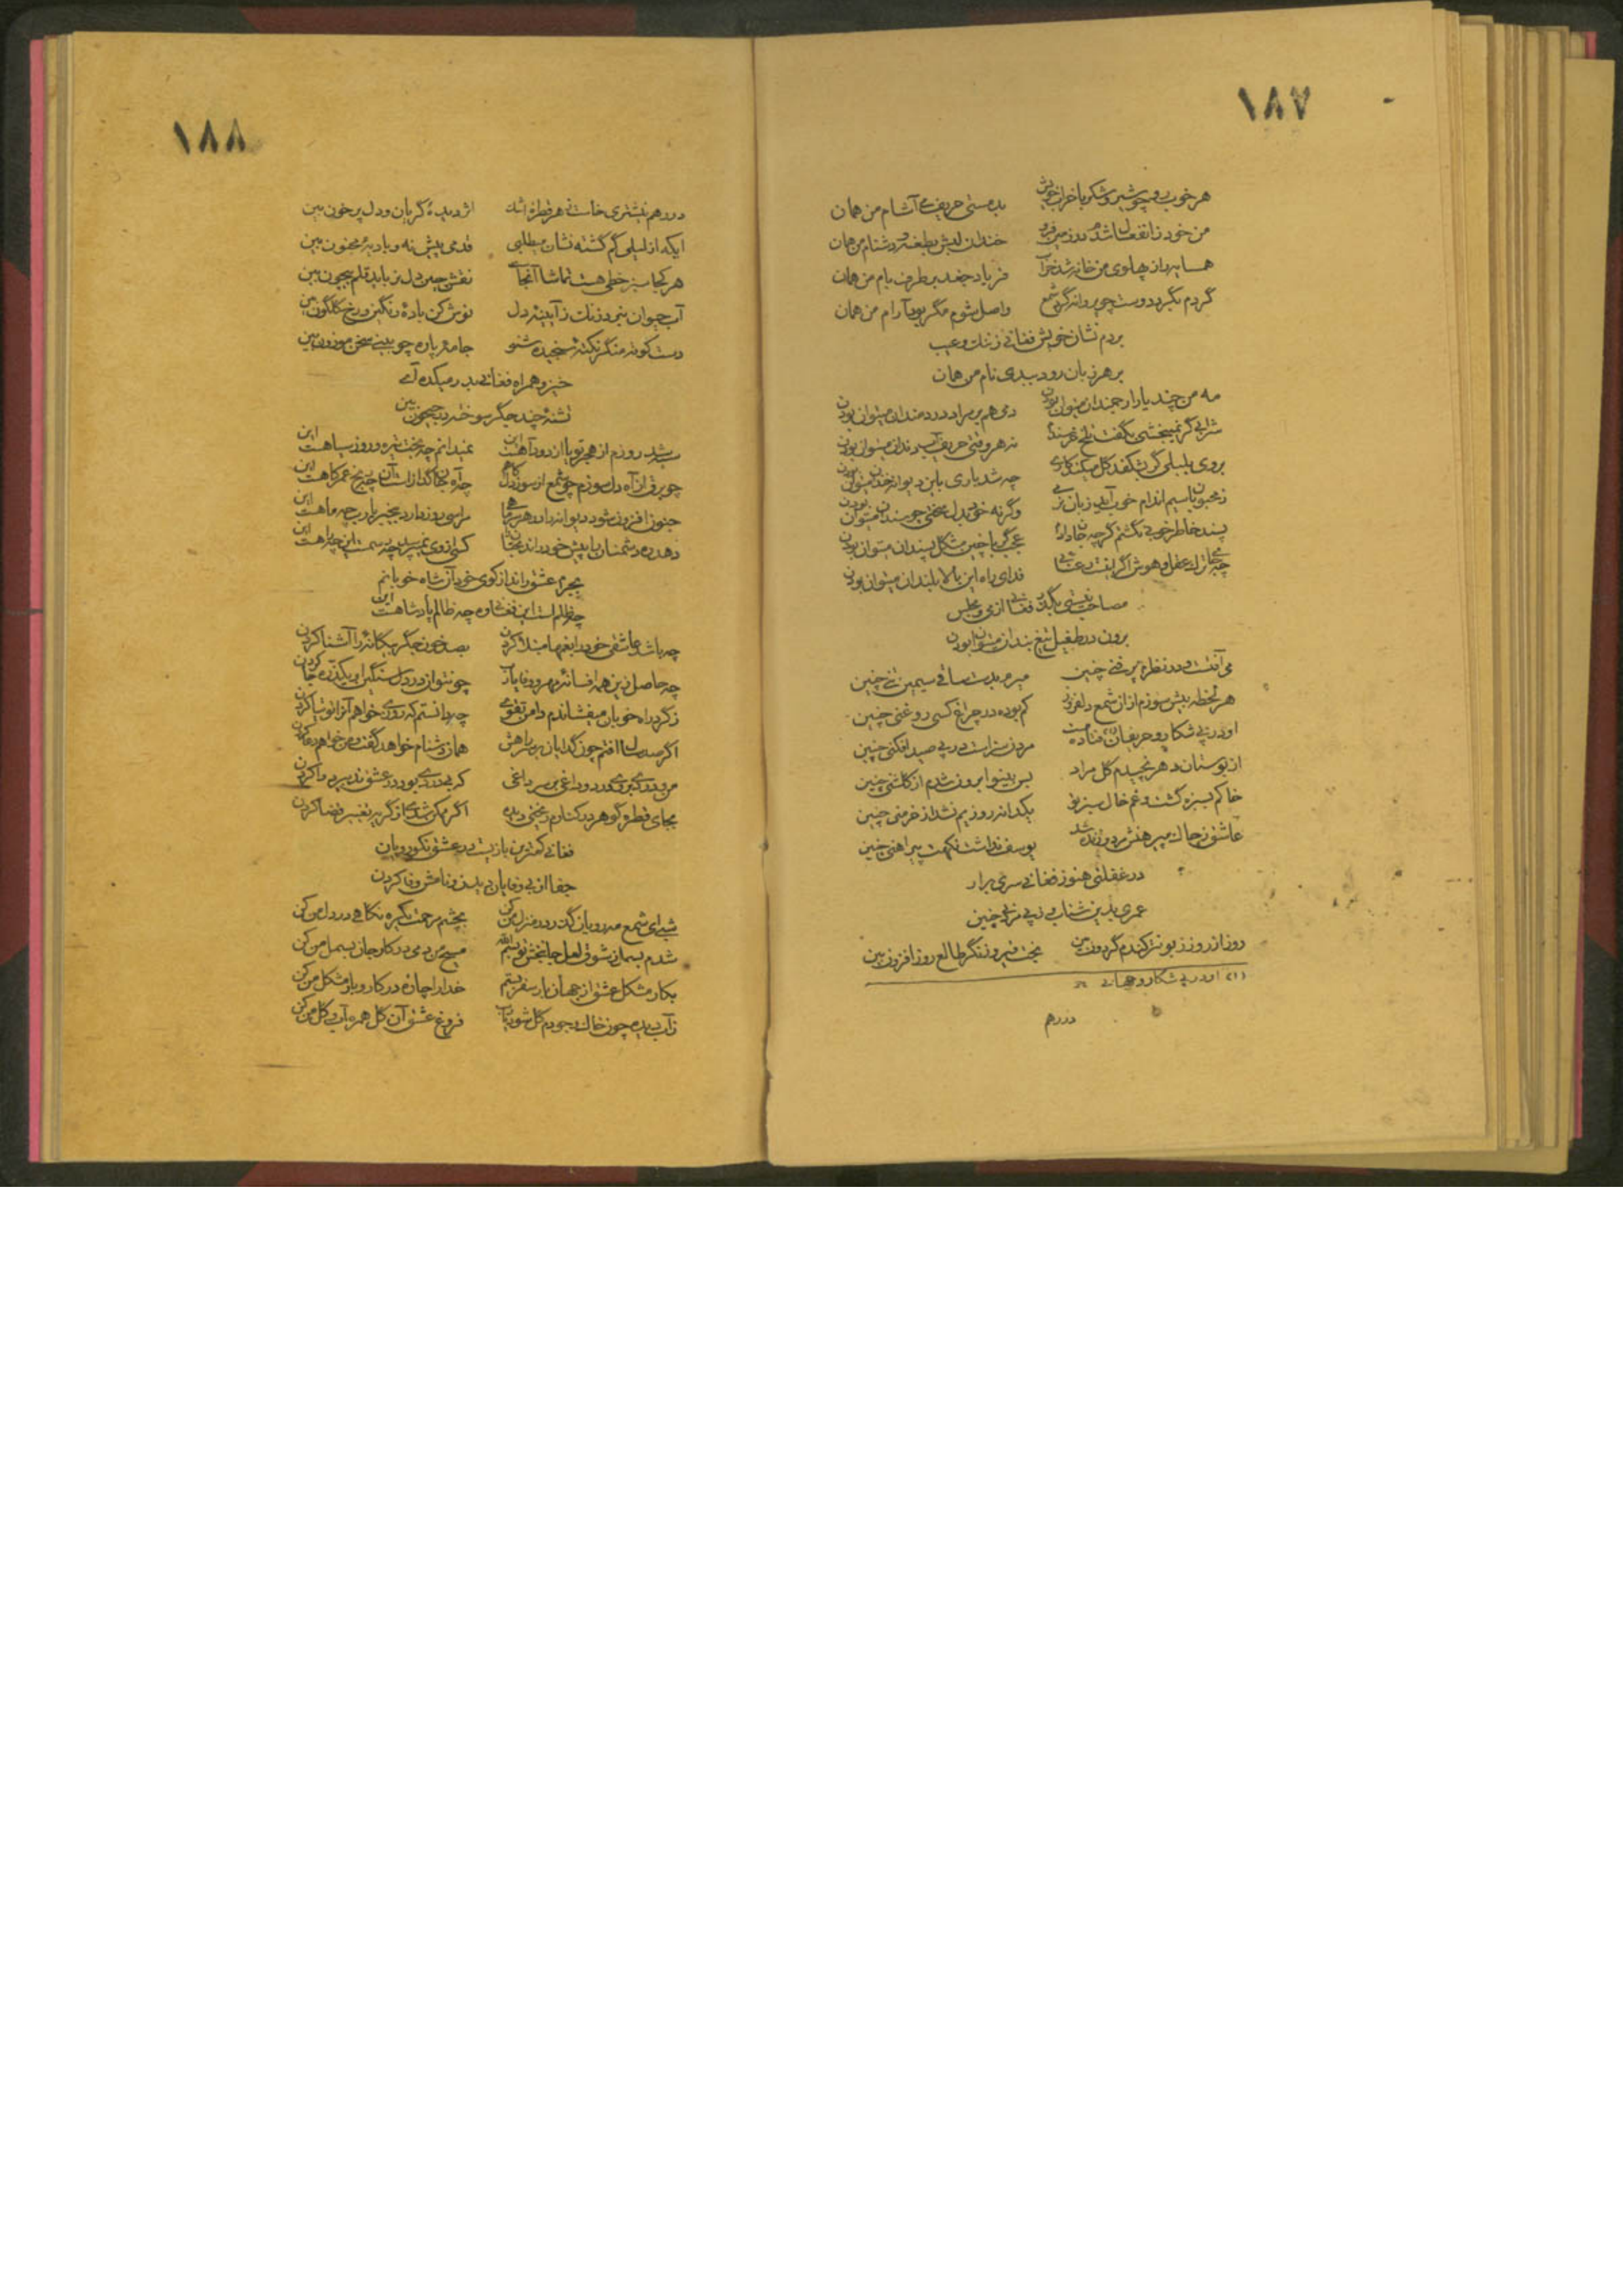 ۱۸۷
هر خوب رو چو شیر و شکر با حریف خویش بدمستی حریف می آشام من همان
من خود ز انفعال شدم در زمین فرو خندان لبش بطعنه و دشنام من همان
همسایه را ز پهلوی من خانه شد خراب فریاد جغد بر طرف بام من همان
گردم بگرد دوست چو پروانه گرد شمع واصل شوم مگر بود آرام من همان
بردم نشان خویش فغانی ز ننگ و عیب
بر هر زبان رود ببدی نام من همان
مه من چند یار ارجمندان میتوان بودن دمی هم بر مراد دردمندان میتوان بودن
شرابی گر نمیبخشی بگفت تلخ خرسندم نه هر وقتی حریف آب دندان میتوان بودن
بروی بلبلی گر بشکفد گل میکند کاری چه شد یاری باین دیوانه خندان میتوان بودن
ز محبوبان سیم اندام خوب آید زبان نرمی وگرنه خود بدل سختی چو سندان میتوان بودن
پسند خاطر خوبی نگشتم گرچه جان دادم عجب گر با چنین مشکل پسندان میتوان بودن
چه جای ترک عقل و هوش اگر اینست رعنایی فدای راه این بالا بلندان میتوان بودن
مصاحب نیستی بگذر فغانی از می و مجلس
برون در طفیل تیغ بندان میتوان بودن
می آفتست در نظرم پر فنی چنین میرم بدست ساقی سیمین تنی چنین
هر لحظه بیش سوزم از آن شمع دلفروز کم بوده در چراغ کسی روغنی چنین
او در پی شکار و حریفان فتاده مست مردن سزاست در پی صید افکنی چنین
از بوستان دهر نچیدم گل مراد بس بینوا برون شدم از گلشنی چنین
خاکم بسبزه گشت و غم خال سبز تو یکدانه روزیم نشد از خرمنی چنین
عاشق ز چاک پیرهنش مرد و زنده شد یوسف نداشت نکهت پیراهنی چنین
در غفلتی هنوز فغانی سری برآر
عمری بدین شتاب و پی مردنی چنین
روز از روز زبونتر کندم گردون بین بخت فیروز نگر طالع روز افزون بین
(۱) او در پی شکار و جهانی
دردم
۱۸۸
دردهم نیشتری خاست ز هر قطرهٔ اشک اثر دیدهٔ گریان و دل پر خون بین
ایکه از لیلی گم گشته نشان میطلبی قدمی پیش نه و بادیهٔ مجنون بین
هر کجا سبز خطی هست تماشا آنجاست نقش چین دل نرباید قلم بیچون بین
آب حیوان نبرد زنگ ز آیینهٔ دل نوش کن بادهٔ رنگین و رخ گلگون بین
دست کوته منگر نکتهٔ سنجیده شنو جامهٔ پاره چو بینی سخن موزون بین
خیز و همراه فغانی بدر میکده آی
تشنهٔ چند جگر سوخته در جیحون بین
سیه شد روزم از هجر تو یا از دود آهست این نمیدانم چه بخت تیره و روز سیاهست این
چو برق از آه دل سوزم چو شمع از سوز دل کاهم چه آه جانگدازست آن چه رنج عمر کاهست این
جنون افزون شود دیوانه را در هر سر ماهی مرا سی روز دارد بیخبر یا رب چه ماهست این
دهد ره دشمنان را پیش خود راند محبان را کسی از وی نمیپرسد چه رسمست این چه راهست این
بجرم عشق راند از کوی خود آن شاه خوبانم
چه ظلم است این فغانی وه چه ظالم پادشاهست این
چه باشد عاشقی خود را بغمها مبتلا کردن بصد خون جگر بیگانهٔ را آشنا کردن
چه حاصل زین همه افسانهٔ مهر و وفا یا رب چو نتوان در دل سنگین او یکذره جا کردن
ز گرد راه خوبان میفشاندم دامن تقوی چه دانستم که روزی خواهم آنرا توتیا کردن
اگر صد سال افتم چون گدایان بر سر راهش همان دشنام خواهد گفت و من خواهم دعا کردن
من و دردی بروی درد و داغی بر سر داغی که بیدردی بود در عشق تدبیر دوا کردن
بجای قطره گوهر در کنارم ریختی دیده اگر ممکن شدی از گریه تغییر قضا کردن
فغانی کمترین بازیست در عشق نکورویان
جفا از بیوفایان دیدن و نامش وفا کردن
شبی ای شمع مهرویان گذر در منزل من کن بچشم مرحمت یکره نگاهی در دل من کن
شدم بسمل ز شوق لعل جانبخش تو بسم الله مسیح من دمی در کار جان بسمل من کن
بکار مشکل عشق از جهان بار سفر بستم خدا را چارهٔ در کار و بار مشکل من کن
ز آب دیده چون خاک وجودم گل شود یا رب فروغ عشق آن گل همره آب و گل من کن